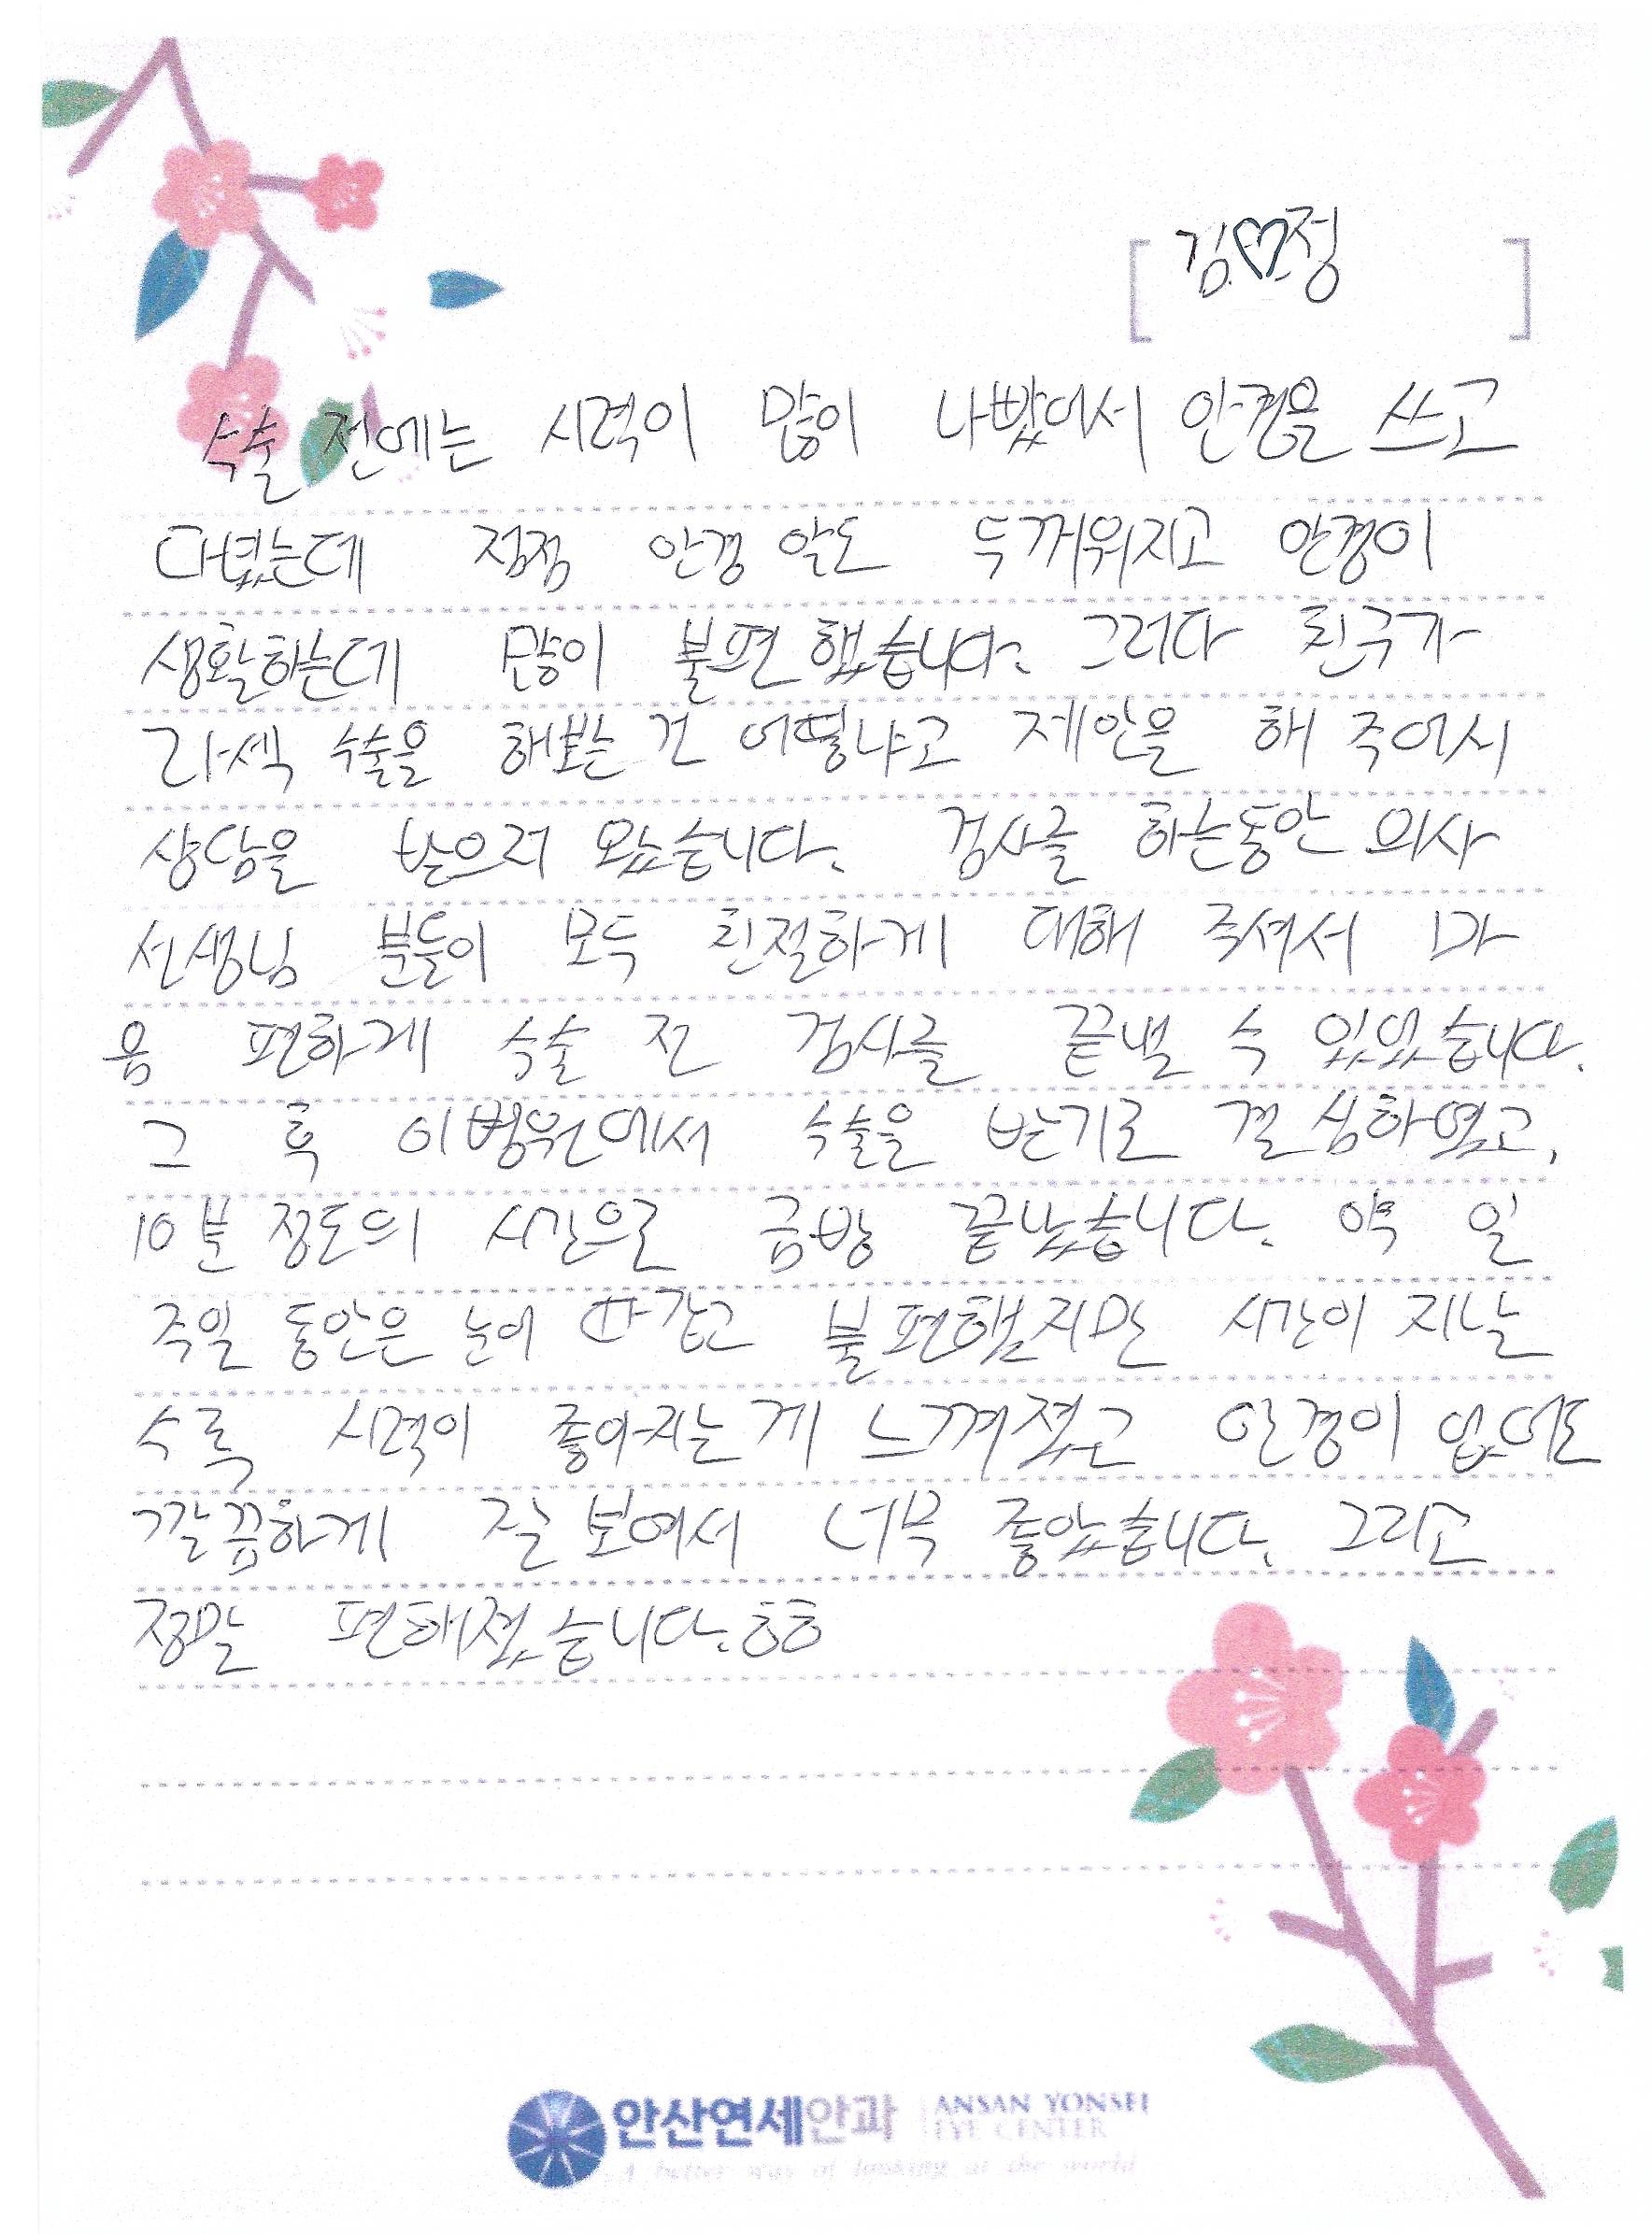 [ 김♡정 ]
수술 전에는 시력이 많이 나빴어서 안경을 쓰고
다녔는데 점점 안경 알도 두꺼워지고 안경이
생활하는데 많이 불편했습니다. 그러다 친구가
라섹 수술을 해보는 건 어떻냐고 제안을 해 주어서
상담을 받으러 왔습니다. 검사를 하는동안 의사
선생님 분들이 모두 친절하게 대해 주셔서 마
음 편하게 수술 전 검사를 끝낼 수 있었습니다.
그 후 이병원에서 수술을 받기로 결심하였고,
10분 정도의 시간으로 금방 끝났습니다. 약 일
주일 동안은 눈이 따갑고 불편했지만 시간이 지날
수록 시력이 좋아지는게 느껴졌고 안경이 없어도
깔끔하게 잘 보여서 너무 좋았습니다. 그리고
정말 편해졌습니다.ㅎㅎ
안산연세안과 ANSAN YONSEI
EYE CENTER
A better way of looking at the world